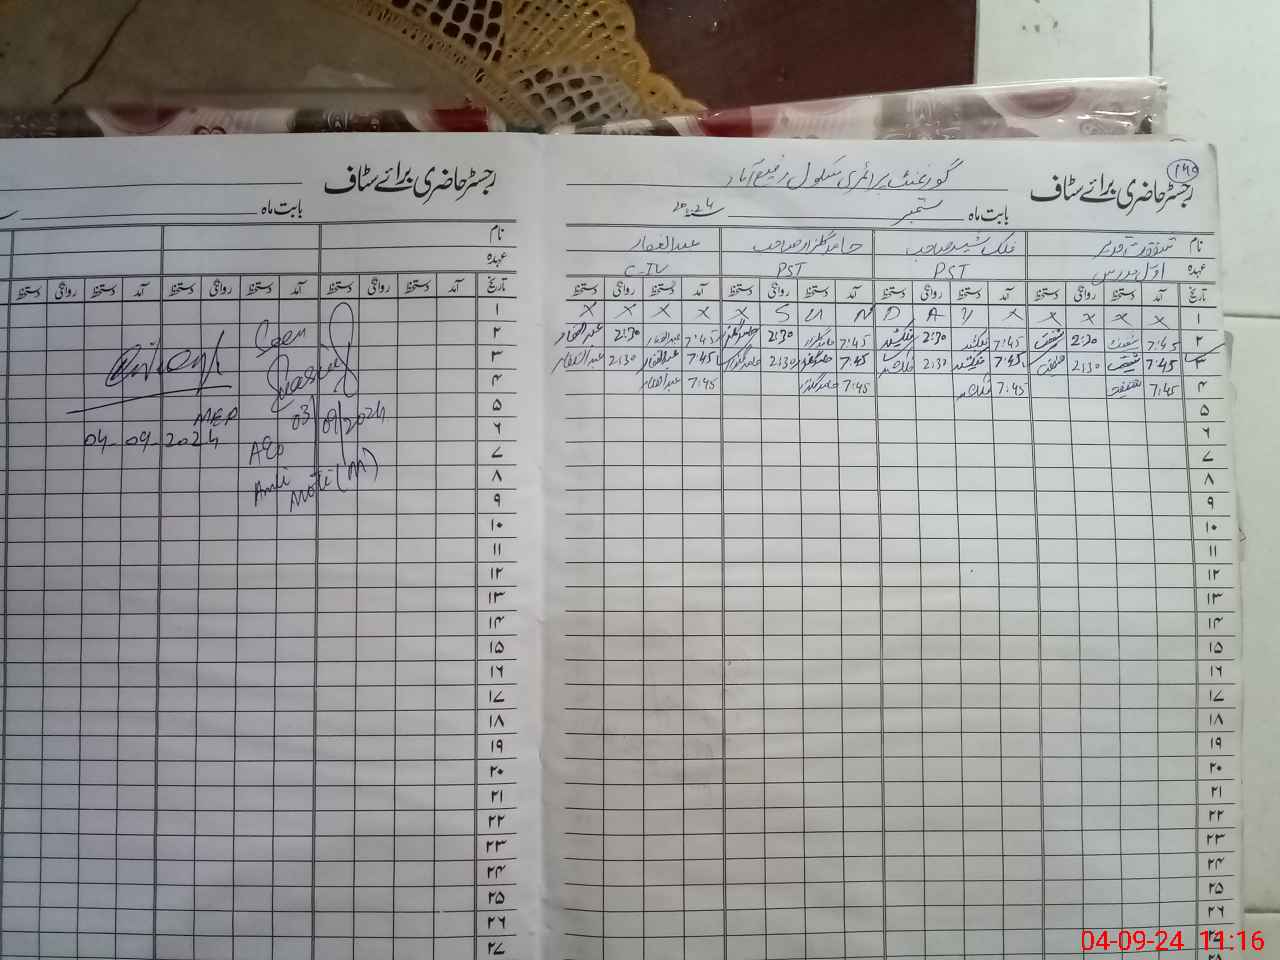 رجسٹر حاضری برائے سٹاف
بابت ماہ
نام
عہدہ
تاریخ آمد دستخط روانگی دستخط آمد دستخط روانگی دستخط آمد دستخط روانگی دستخط
۱
۲ Seen
۳
۴
۵ MEA 03/09/2024
۶ 04-09-2024 AEO
۷
۸
۹
۱۰
۱۱
۱۲
۱۳
۱۴
۱۵
۱۶
۱۷
۱۸
۱۹
۲۰
۲۱
۲۲
۲۳
۲۴
۲۵
۲۶
۲۷
۱۴۵
رجسٹر حاضری برائے سٹاف گورنمنٹ پرائمری سکول رفیع آباد
بابت ماہ ستمبر ۲۰۲۴
نام فلک شیر صاحب حامد گلزار صاحب عبدالغفار
عہدہ اول مدرس PST PST C-IV
تاریخ آمد دستخط روانگی دستخط آمد دستخط روانگی دستخط آمد دستخط روانگی دستخط آمد دستخط روانگی دستخط
۱ x x x x x Y A D N U S x x x x x
۲ 7:45 شفقت 2:30 شفقت 7:45 فلک شیر 2:30 فلک شیر 7:45 حامد گلزار 2:30 حامد گلزار 7:45 عبدالغفار 2:30 عبدالغفار
۳ 7:45 شفقت 2:30 شفقت 7:45 فلک شیر 2:30 فلک شیر 7:45 حامد گلزار 2:30 حامد گلزار 7:45 عبدالغفار 2:30 عبدالغفار
۴ 7:45 شفقت 7:45 فلک شیر 7:45 حامد گلزار 7:45 عبدالغفار
۵
۶
۷
۸
۹
۱۰
۱۱
۱۲
۱۳
۱۴
۱۵
۱۶
۱۷
۱۸
۱۹
۲۰
۲۱
۲۲
۲۳
۲۴
۲۵
۲۶
04-09-24 11:16